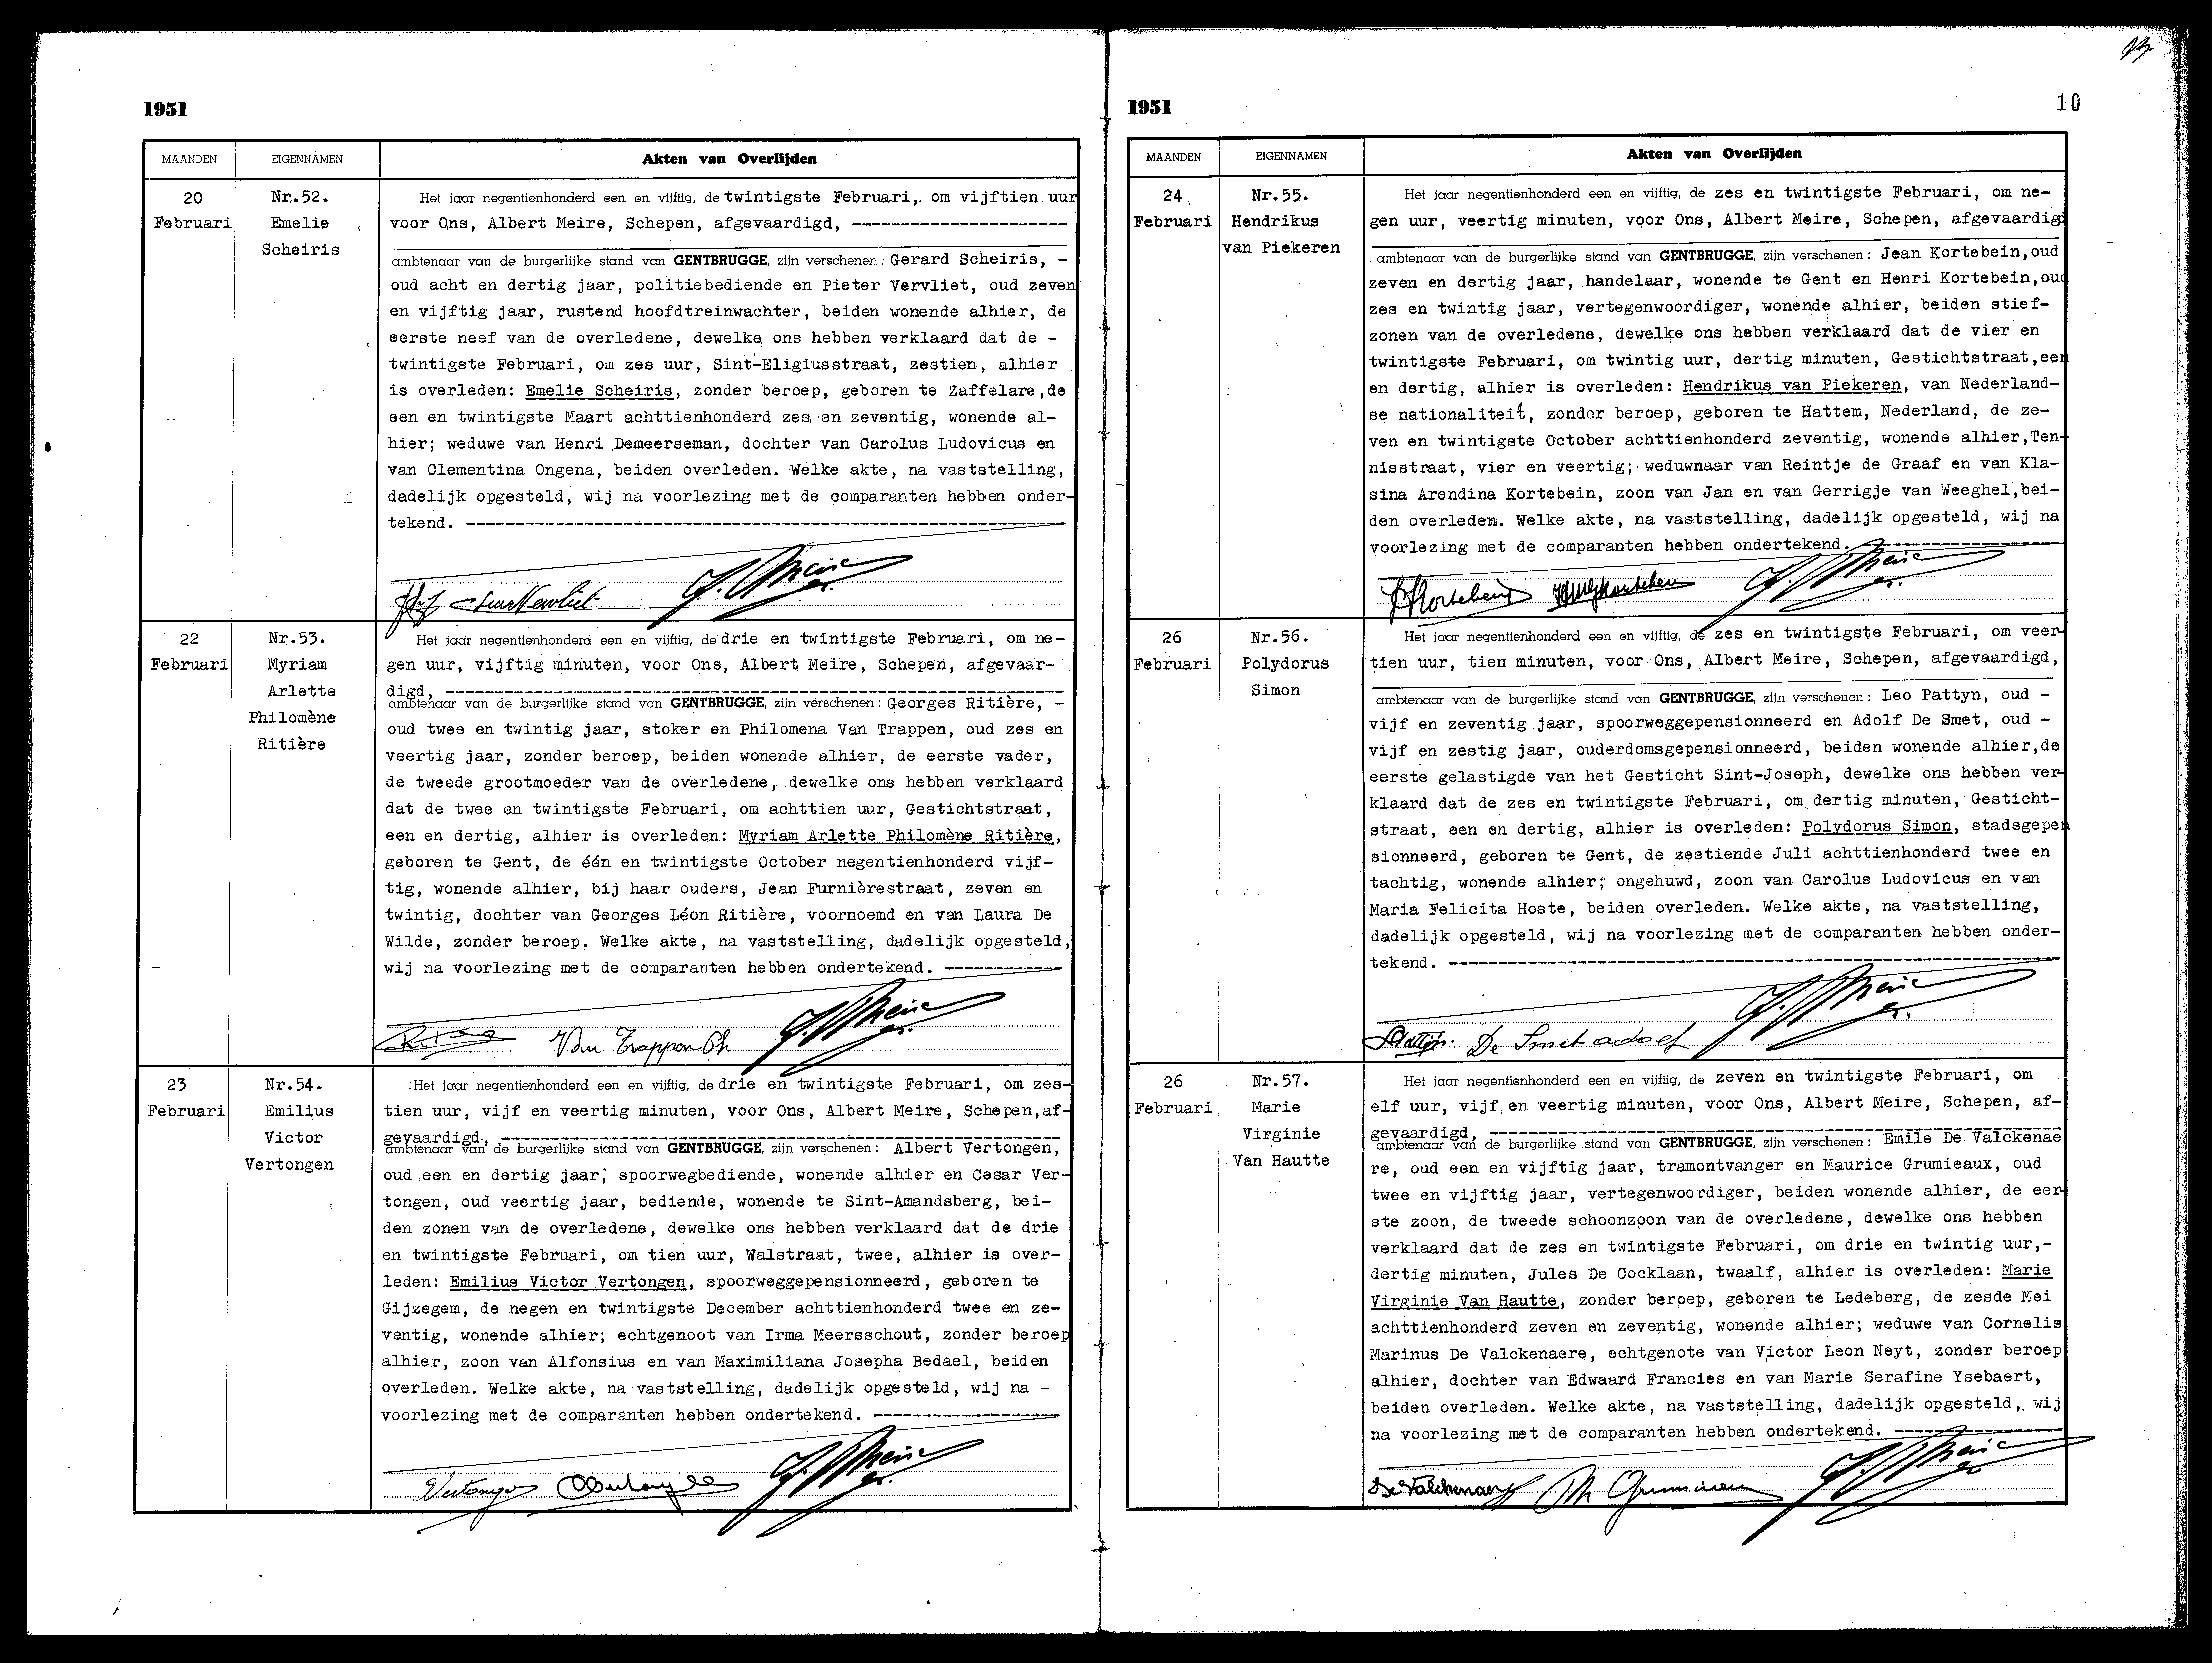 1951
MAANDEN EIGENNAMEN Akten van Overlijden
20
Februari
Nr.52.
Emelie
Scheiris
Het jaar negentienhonderd een en vijftig, de twintigste Februari, om vijftien uur
voor Ons, Albert Meire, Schepen, afgevaardigd, ----------------------
ambtenaar van de burgerlijke stand van GENTBRUGGE, zijn verschenen : Gerard Scheiris, -
oud acht en dertig jaar, politiebediende en Pieter Vervliet, oud zeven
en vijftig jaar, rustend hoofdtreinwachter, beiden wonende alhier, de
eerste neef van de overledene, dewelke ons hebben verklaard dat de -
twintigste Februari, om zes uur, Sint-Eligiusstraat, zestien, alhier
is overleden: Emelie Scheiris, zonder beroep, geboren te Zaffelare,de
een en twintigste Maart achttienhonderd zes en zeventig, wonende al-
hier; weduwe van Henri Demeerseman, dochter van Carolus Ludovicus en
van Clementina Ongena, beiden overleden. Welke akte, na vaststelling,
dadelijk opgesteld, wij na voorlezing met de comparanten hebben onder-
tekend. ------------------------------------------------------------
22
Februari
Nr.53.
Myriam
Arlette
Philomène
Ritière
Het jaar negentienhonderd een en vijftig, de drie en twintigste Februari, om ne-
gen uur, vijftig minuten, voor Ons, Albert Meire, Schepen, afgevaar-
digd, --------------------------------------------------------------
ambtenaar van de burgerlijke stand van GENTBRUGGE, zijn verschenen : Georges Ritière, -
oud twee en twintig jaar, stoker en Philomena Van Trappen, oud zes en
veertig jaar, zonder beroep, beiden wonende alhier, de eerste vader,
de tweede grootmoeder van de overledene, dewelke ons hebben verklaard
dat de twee en twintigste Februari, om achttien uur, Gestichtstraat,
een en dertig, alhier is overleden: Myriam Arlette Philomène Ritière,
geboren te Gent, de één en twintigste October negentienhonderd vijf-
tig, wonende alhier, bij haar ouders, Jean Furnièrestraat, zeven en
twintig, dochter van Georges Léon Ritière, voornoemd en van Laura De
Wilde, zonder beroep. Welke akte, na vaststelling, dadelijk opgesteld,
wij na voorlezing met de comparanten hebben ondertekend. ------------
Van Trappen Ph
23
Februari
Nr.54.
Emilius
Victor
Vertongen
Het jaar negentienhonderd een en vijftig, de drie en twintigste Februari, om zes-
tien uur, vijf en veertig minuten, voor Ons, Albert Meire, Schepen,af-
gevaardigd, ---------------------------------------------------------
ambtenaar van de burgerlijke stand van GENTBRUGGE, zijn verschenen : Albert Vertongen,
oud een en dertig jaar, spoorwegbediende, wonende alhier en Cesar Ver-
tongen, oud veertig jaar, bediende, wonende te Sint-Amandsberg, bei-
den zonen van de overledene, dewelke ons hebben verklaard dat de drie
en twintigste Februari, om tien uur, Walstraat, twee, alhier is over-
leden: Emilius Victor Vertongen, spoorweggepensionneerd, geboren te
Gijzegem, de negen en twintigste December achttienhonderd twee en ze-
ventig, wonende alhier; echtgenoot van Irma Meersschout, zonder beroep
alhier, zoon van Alfonsius en van Maximiliana Josepha Bedael, beiden
overleden. Welke akte, na vaststelling, dadelijk opgesteld, wij na -
voorlezing met de comparanten hebben ondertekend. -------------------
Vertongen
1951
10
MAANDEN EIGENNAMEN Akten van Overlijden
24
Februari
Nr.55.
Hendrikus
van Piekeren
Het jaar negentienhonderd een en vijftig, de zes en twintigste Februari, om ne-
gen uur, veertig minuten, voor Ons, Albert Meire, Schepen, afgevaardigd
ambtenaar van de burgerlijke stand van GENTBRUGGE, zijn verschenen : Jean Kortebein,oud
zeven en dertig jaar, handelaar, wonende te Gent en Henri Kortebein,oud
zes en twintig jaar, vertegenwoordiger, wonende alhier, beiden stief-
zonen van de overledene, dewelke ons hebben verklaard dat de vier en
twintigste Februari, om twintig uur, dertig minuten, Gestichtstraat,een
en dertig, alhier is overleden: Hendrikus van Piekeren, van Nederland-
se nationaliteit, zonder beroep, geboren te Hattem, Nederland, de ze-
ven en twintigste October achttienhonderd zeventig, wonende alhier,Ten-
nisstraat, vier en veertig; weduwnaar van Reintje de Graaf en van Kla-
sina Arendina Kortebein, zoon van Jan en van Gerrigje van Weeghel,bei-
den overleden. Welke akte, na vaststelling, dadelijk opgesteld, wij na
voorlezing met de comparanten hebben ondertekend. -------------------
26
Februari
Nr.56.
Polydorus
Simon
Het jaar negentienhonderd een en vijftig, de zes en twintigste Februari, om veer-
tien uur, tien minuten, voor Ons, Albert Meire, Schepen, afgevaardigd,
ambtenaar van de burgerlijke stand van GENTBRUGGE, zijn verschenen : Leo Pattyn, oud -
vijf en zeventig jaar, spoorweggepensionneerd en Adolf De Smet, oud -
vijf en zestig jaar, ouderdomsgepensionneerd, beiden wonende alhier,de
eerste gelastigde van het Gesticht Sint-Joseph, dewelke ons hebben ver-
klaard dat de zes en twintigste Februari, om dertig minuten, Gesticht-
straat, een en dertig, alhier is overleden: Polydorus Simon, stadsgepen
sionneerd, geboren te Gent, de zestiende Juli achttienhonderd twee en
tachtig, wonende alhier; ongehuwd, zoon van Carolus Ludovicus en van
Maria Felicita Hoste, beiden overleden. Welke akte, na vaststelling,
dadelijk opgesteld, wij na voorlezing met de comparanten hebben onder-
tekend. -------------------------------------------------------------
De Smet adolf
26
Februari
Nr.57.
Marie
Virginie
Van Hautte
Het jaar negentienhonderd een en vijftig, de zeven en twintigste Februari, om
elf uur, vijf en veertig minuten, voor Ons, Albert Meire, Schepen, af-
gevaardigd, ---------------------------------------------------------
ambtenaar van de burgerlijke stand van GENTBRUGGE, zijn verschenen : Emile De Valckenae
re, oud een en vijftig jaar, tramontvanger en Maurice Grumieaux, oud
twee en vijftig jaar, vertegenwoordiger, beiden wonende alhier, de eer-
ste zoon, de tweede schoonzoon van de overledene, dewelke ons hebben
verklaard dat de zes en twintigste Februari, om drie en twintig uur,-
dertig minuten, Jules De Cocklaan, twaalf, alhier is overleden: Marie
Virginie Van Hautte, zonder beroep, geboren te Ledeberg, de zesde Mei
achttienhonderd zeven en zeventig, wonende alhier; weduwe van Cornelis
Marinus De Valckenaere, echtgenote van Victor Leon Neyt, zonder beroep
alhier, dochter van Edwaard Francies en van Marie Serafine Ysebaert,
beiden overleden. Welke akte, na vaststelling, dadelijk opgesteld, wij
na voorlezing met de comparanten hebben ondertekend. ----------------